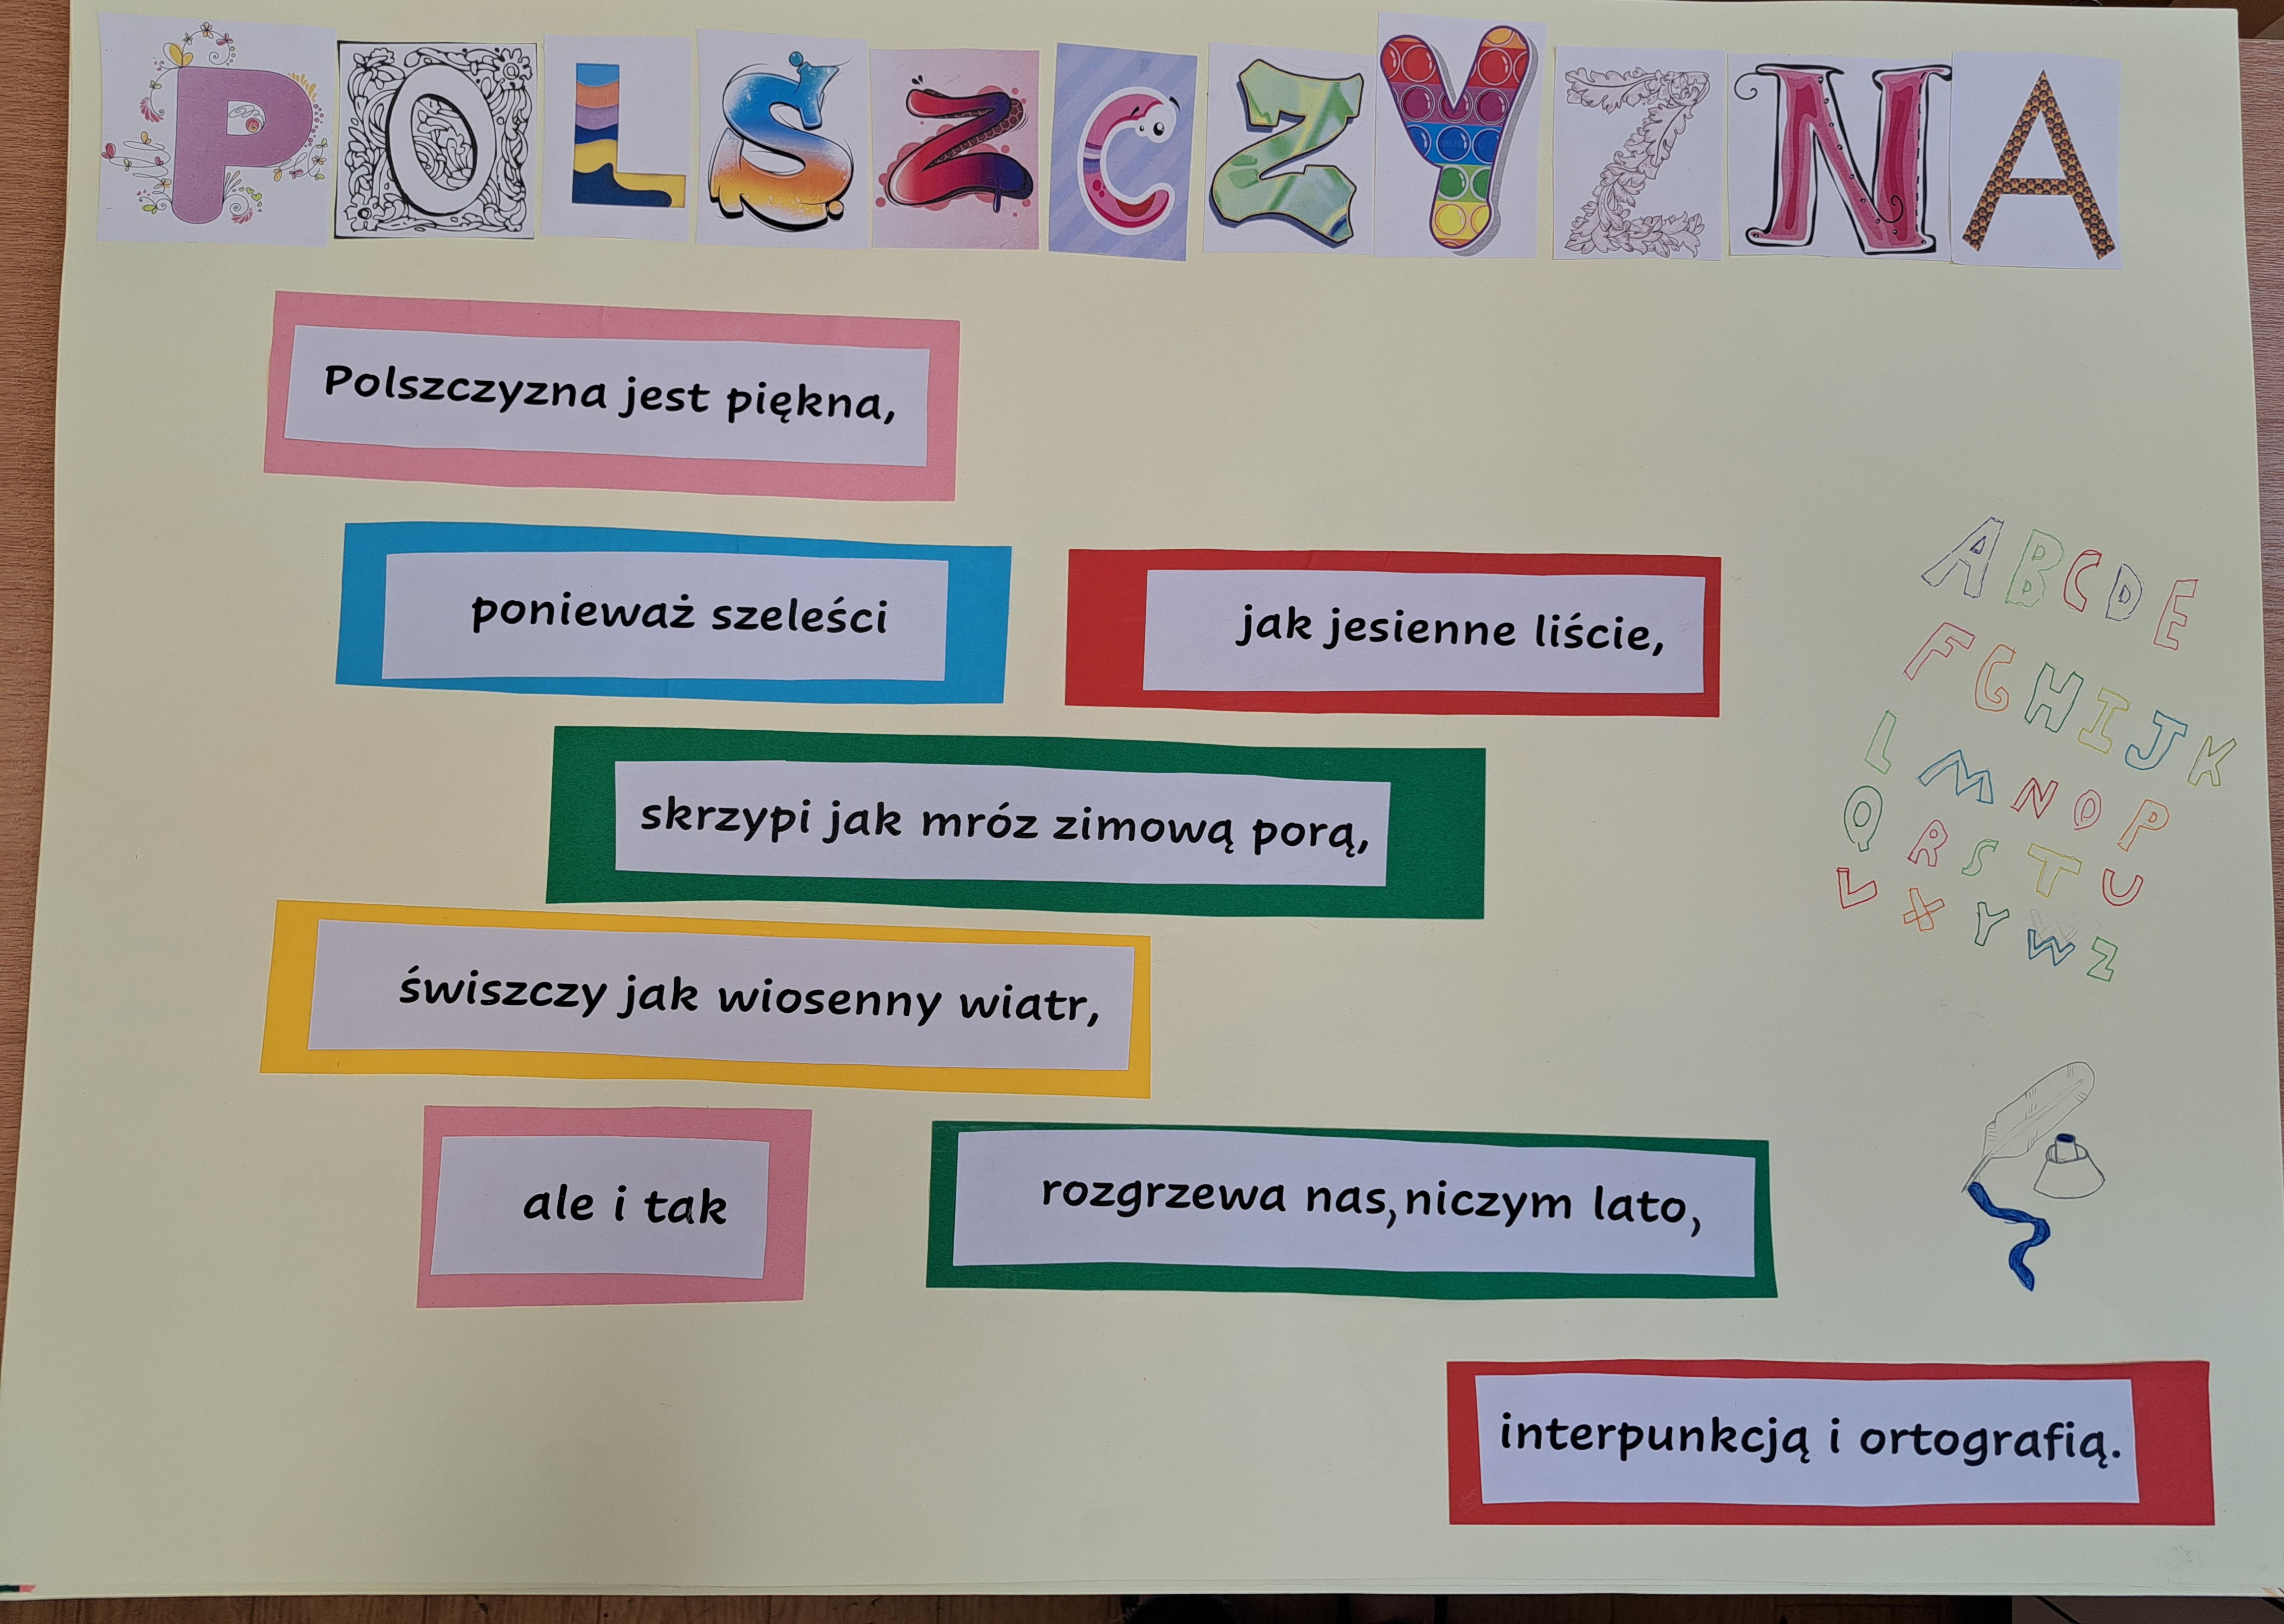 POLSZCZYZNA
Polszczyzna jest piękna,
ponieważ szeleści
jak jesienne liście,
skrzypi jak mróz zimową porą,
świszczy jak wiosenny wiatr,
ale i tak
rozgrzewa nas, niczym lato,
interpunkcją i ortografią.
A B C D E
F G H I J K
L M N O P
Q R S T U
V X Y W Z